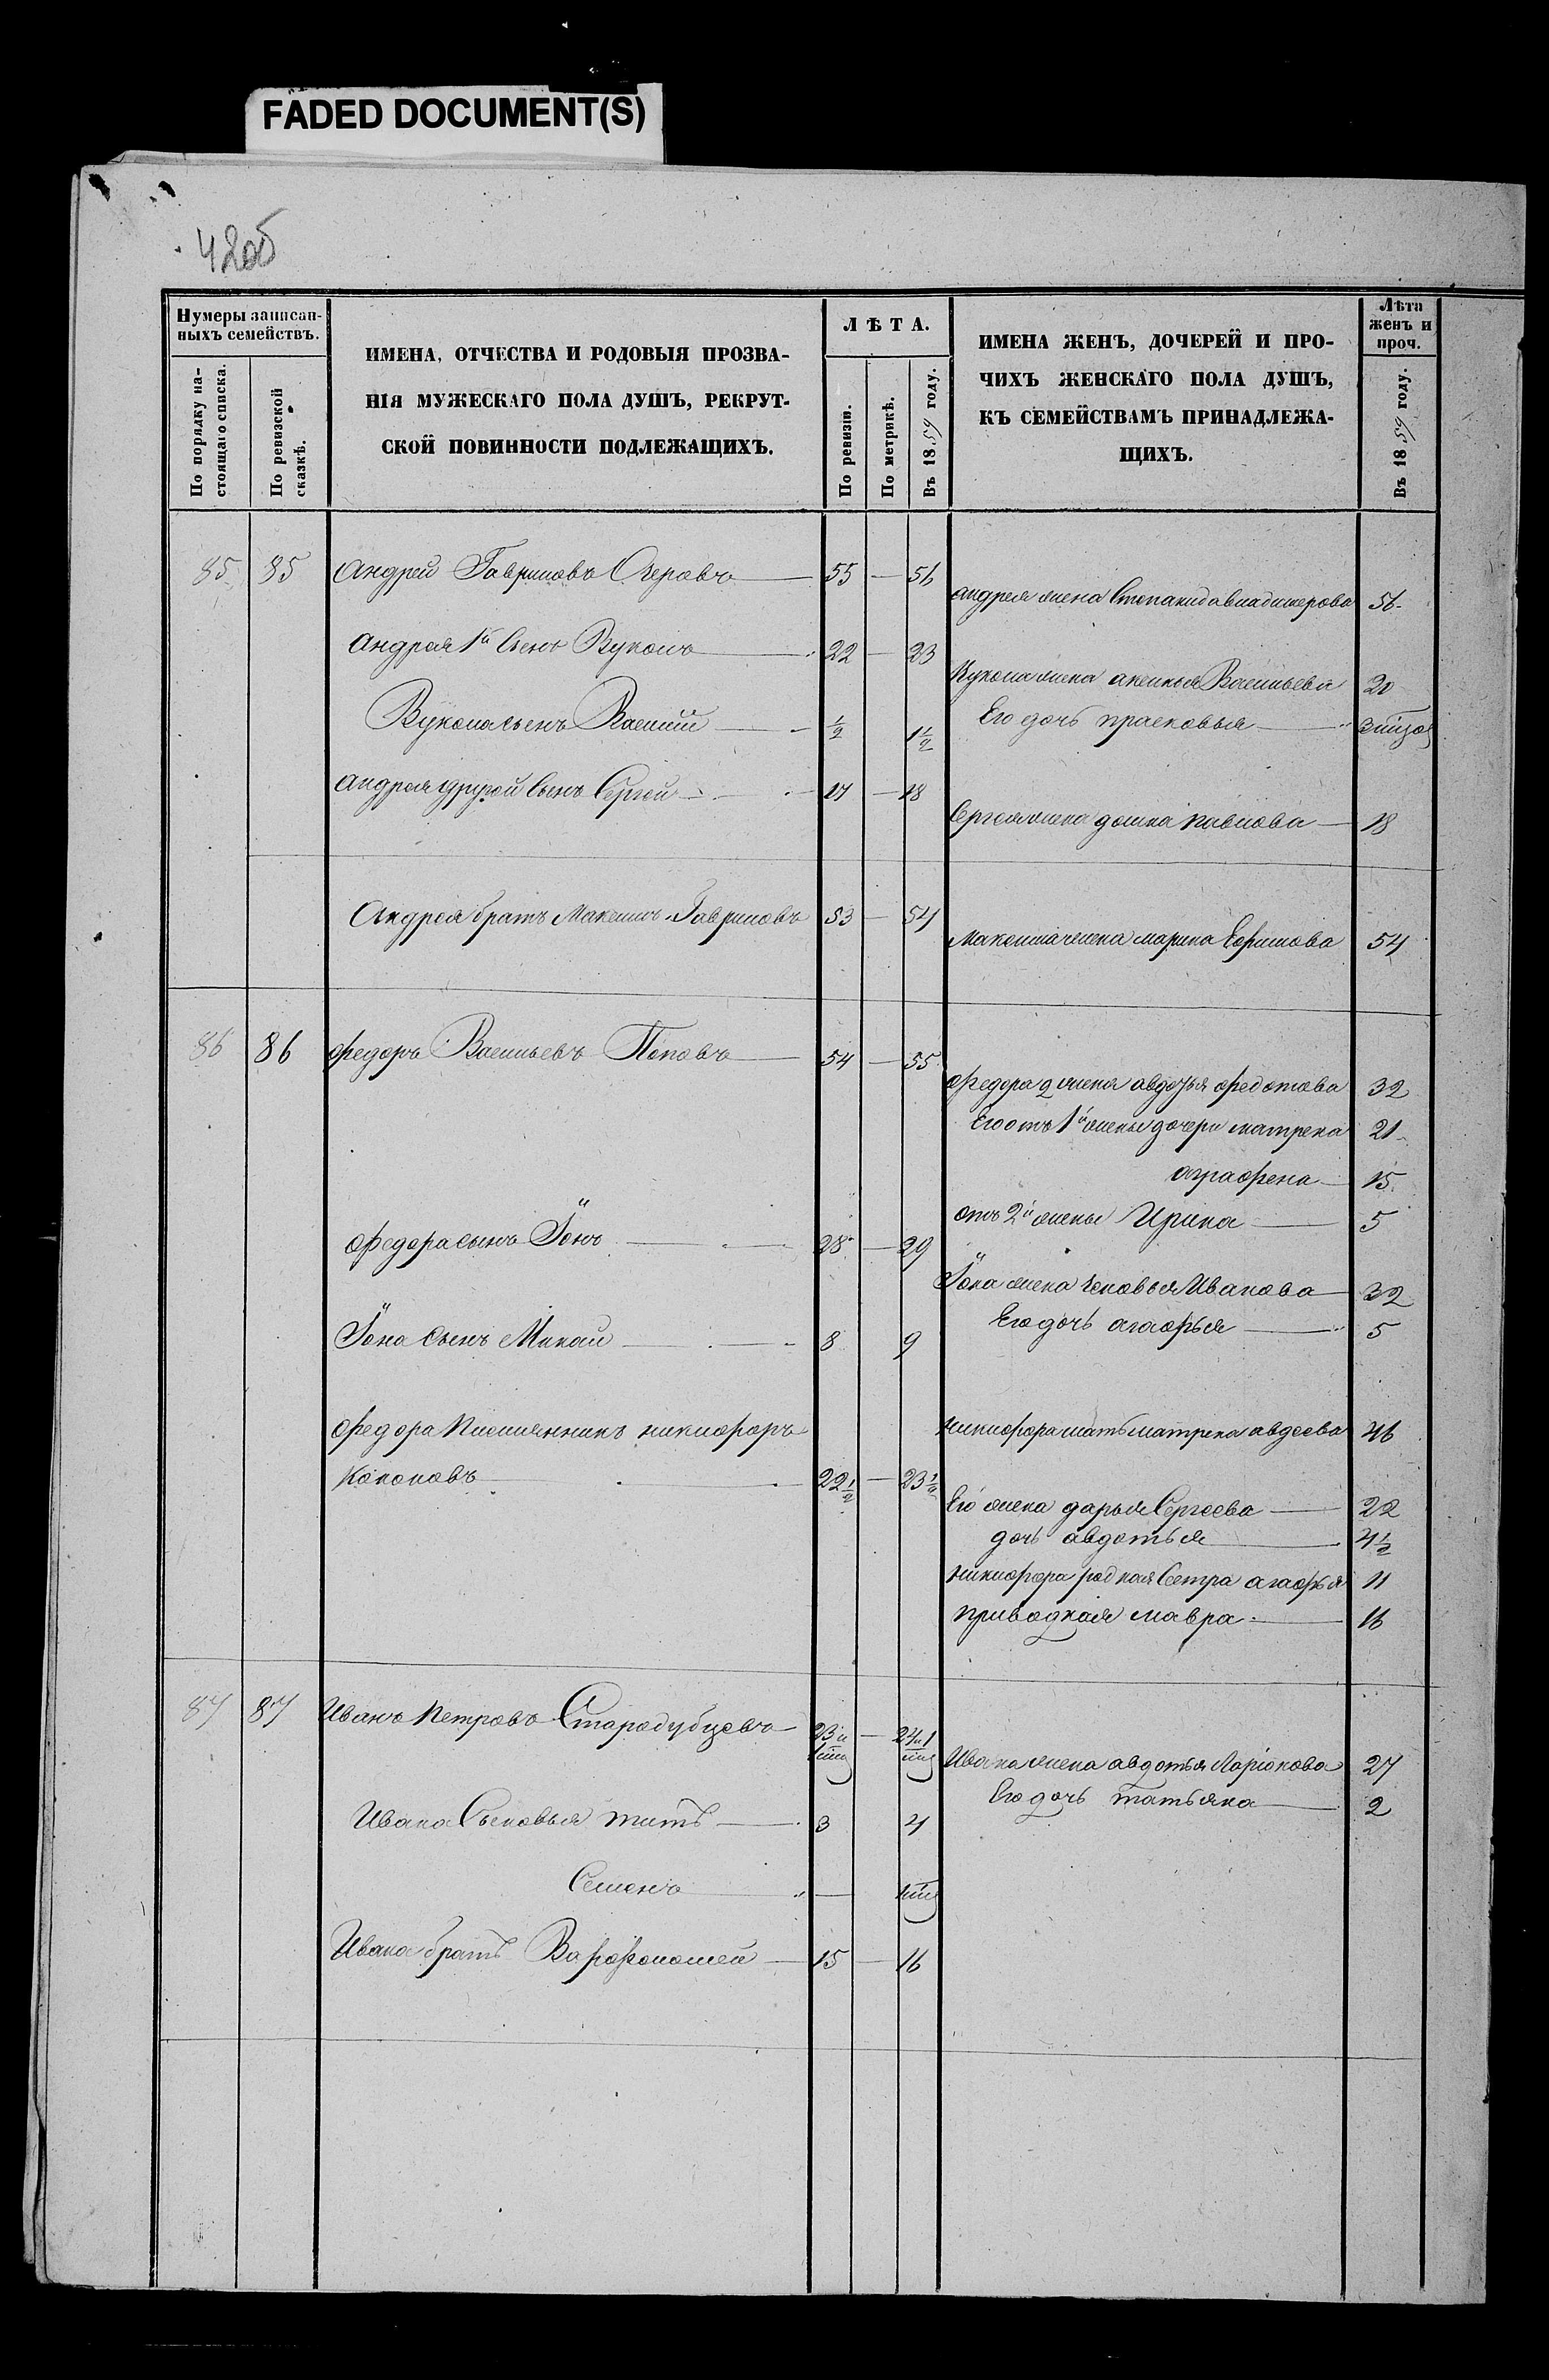 FADED DOCUMENT(S)
42об
Нумеры записан-
ныхъ семействъ.
По порядку на-
стоящаго списка.
По ревизской
сказкѣ.
ИМЕНА, ОТЧЕСТВА И РОДОВЫЯ ПРОЗВА-
НІЯ МУЖЕСКАГО ПОЛА ДУШЪ, РЕКРУТ-
СКОЙ ПОВИННОСТИ ПОДЛЕЖАЩИХЪ.
ЛѢТА.
По ревизіи.
По метрикѣ.
Въ 1859 году.
ИМЕНА ЖЕНЪ, ДОЧЕРЕЙ И ПРО-
ЧИХЪ ЖЕНСКАГО ПОЛА ДУШЪ,
КЪ СЕМЕЙСТВАМЪ ПРИНАДЛЕЖА-
ЩИХЪ.
Лѣта
женъ и
проч.
Въ 1859 году.
85 85 Андрей Гавриловъ 55 — 56
андрея жена Степанида владимерова 56
Андрея 1й Сынъ Вуколъ 22 — 23
Вукола жена аксинья Васильева 20
Вукола сынъ Василий 1/2 1 1/2
Его дочь прасковья
андрея другой Сынъ Сергей 17 — 18
Сергея жена домна павлова 18
Андрея братъ Максимъ Гавриловъ 53 — 54
Максима жена марина Ефимова 54
86 86 федоръ Васильевъ Поповъ 54 — 55
федора 2 жена авдотья федотова 32
Его отъ 1й жены дочери матрена 21
аграфена 15
отъ 2й жены Ирина 5
федора сынъ Іонъ 28 — 29
Іона жена Иванова 32
Его дочь агафья 5
Іона Сынъ Микай 8 9
федора племянникъ никифоръ
Кононовъ 22 1/2 — 23 1/2
никифора мать матрена авдеева 46
Его жена дарья Сергеева 22
дочь авдотья 4 1/2
никифора родная Сестра агафья 11
приводная мавра 16
87 87 Иванъ Петровъ Стародубцевъ 23 и 1 — 24 и 1
Ивана жена авдотья Ларіонова 27
Его дочь татьяна 2
Ивана Сыновья титъ 3 4
Семенъ —
Ивана братъ Варфоломей 15 — 16